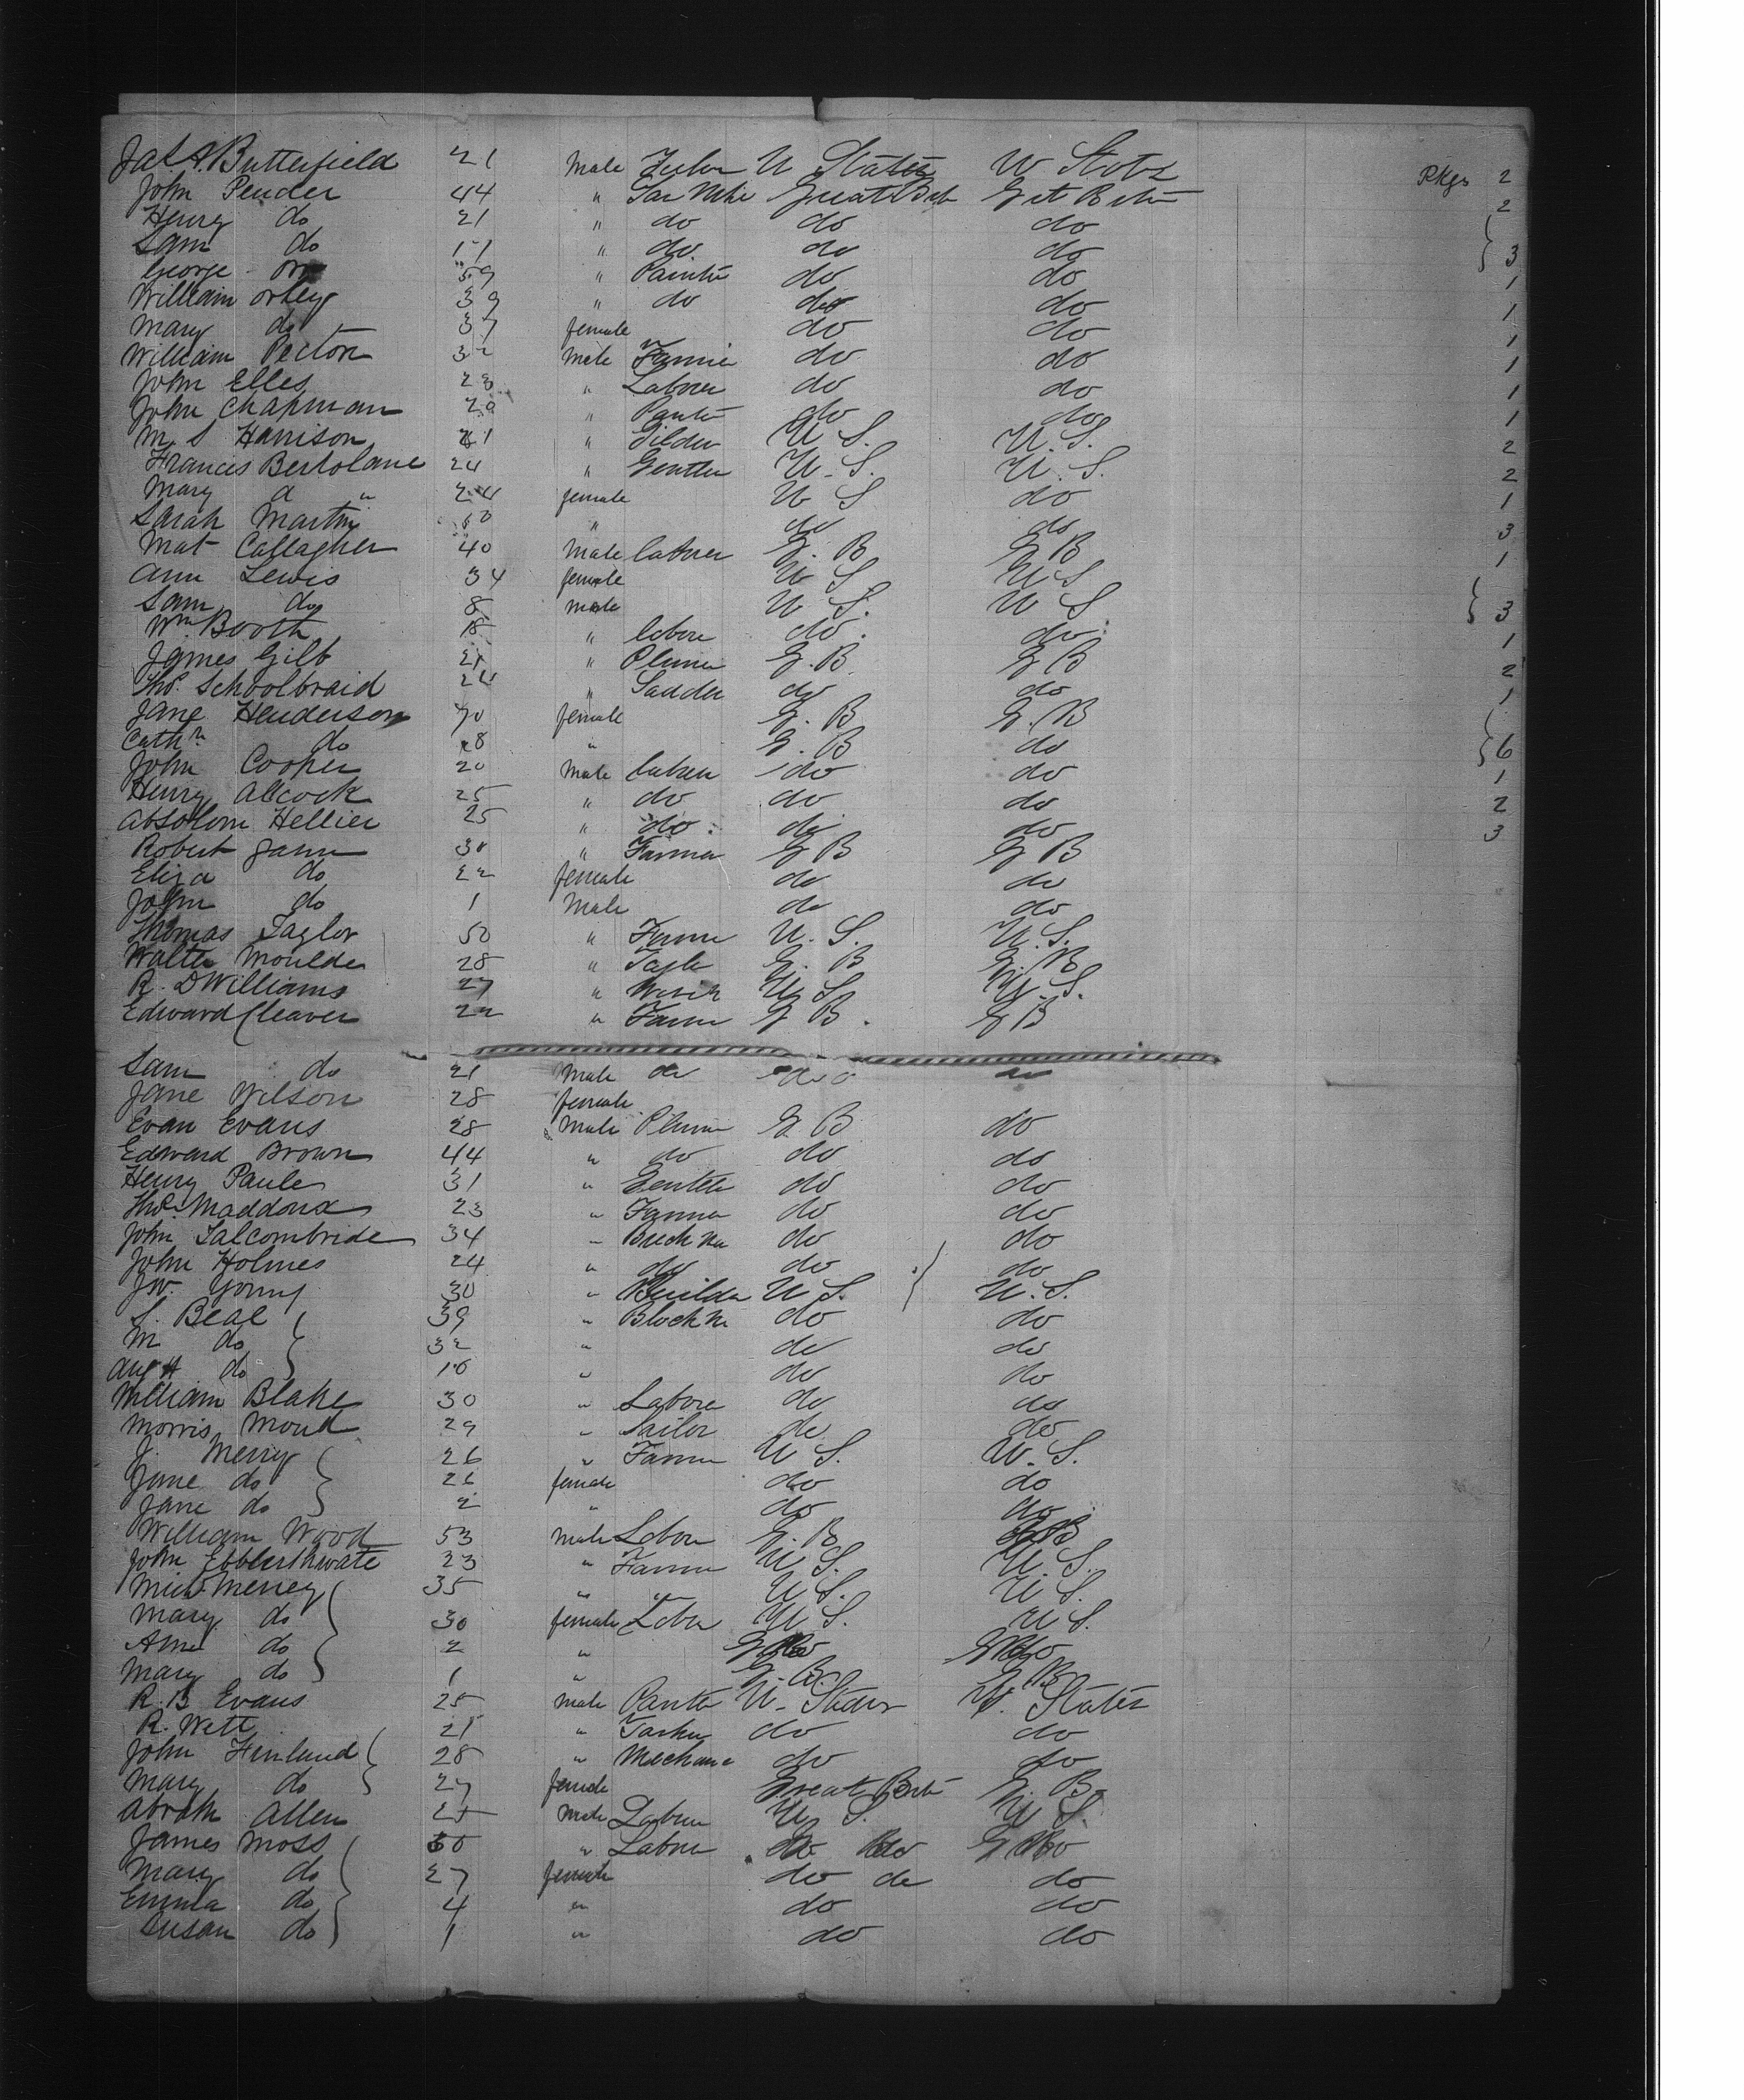 Jas A. Butterfield 21 Male U States U States Pkgs 2
John Pender 44 " Great Brit Gt Britn 2
Henry do 21 " do do do
Sam do 17 " do do do 3
George 59 " Painter do do 1
William Orley 39 " do do do 1
Mary do 37 female do do 1
William Pecton 32 Male Farmer do do 1
John Elles 28 " Laborer do do 1
John Chapman 29 " Painte do do 1
M. S Harrison 21 " Gilder U S. U. S. 2
Francis Bertolane 24 " Gentlen U. S. U. S. 2
Mary d " 24 female U S do 1
Sarah Martin " do do 3
Mat Callagher 40 Male laborer G. B G B 1
Ann Lewis 34 female U S U S
Sam do 8 male U S. U S 3
Wm. Booth 18 " labore do. do. 1
James Gilb 21 " Plumer G. B. G B 2
Thos. Schoolbraid 24 " Sadder do do 1
Jane Henderson 70 female G. B G. B
Cathn. do 28 " G. B do 6
John Cooper 20 Male laborer do do 1
Henry Alcock 25 " do do do 2
Absolom Hellier 25 " do. do do 3
Robert Jann 30 " Farmer G B G B
Eliza do 22 female do do
John do 1 Male do do
Thomas Taylor 50 " Farme U. S. U. S.
Walter Moulder 28 " G. B G. B
R. D Williams 27 " U S U. S.
Edward Cleaver 22 " Farme G B. G B
Sam do 21 Male do do do
Jane Wilson 28 female
Evan Evans 28 Male Plume G B do
Edward Brown 44 " do do do
Henry Paule 31 " Gentle do do
Thos. Maddoux 23 " Farmer do do
John Salcombride 34 " do do
John Holmes 24 " do do do
Jw. Young 30 " Builder U S. U. S.
S. Beal 39 " Block M do do
M do 32 " do do
Aug H do 10 " do do
William Blake 30 " Labore do do
Morris Moud 29 " Sailor do do
J. Merry 26 " Farme U S. U. S.
Jane do 26 female do do
Jane do 2 " do do
William Wood 53 male Labore G. B G B
John Ebblerthwate 23 " Farme U S. U. S.
Merrey 35 " " U S. U S.
Mary do 30 female Labe U S. U S.
Ann do 2 "
Mary do 1 " G. B. G B
R. B Evans 25 male Painte U. States U. States
R. Witt 21 " do do
John Finland 28 " Mechanc do do
Mary do 27 female Great Brit G. B
Abrahm Allen 25 Male Laborer U S. U S.
James Moss 30 " Labore
Mary do 27 female do do do
Emma do 4 " do do
Susan do 1 " do do